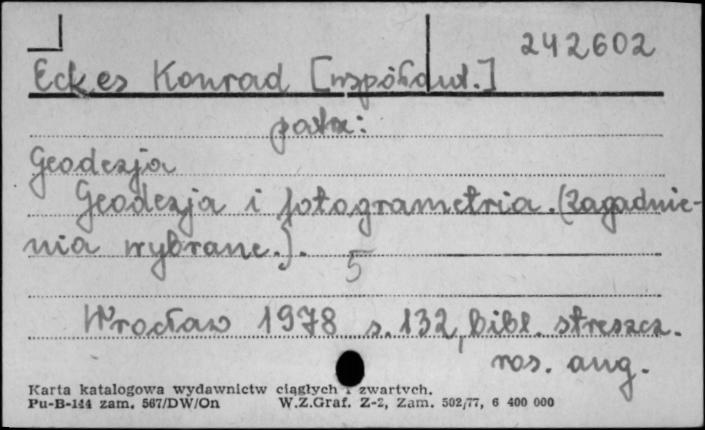 242602
Eckes Konrad [współaut.]
patrz:
Geodezja
Geodezja i fotogrametria. (Zagadnie-
nia wybrane.). 5
Wrocław 1978 s. 132, bibl. streszcz.
ros. ang.
Karta katalogowa wydawnictw ciągłych i zwartych.
Pu-B-144 zam. 567/DW/On W.Z.Graf. Z-2, Zam. 502/77, 6 400 000